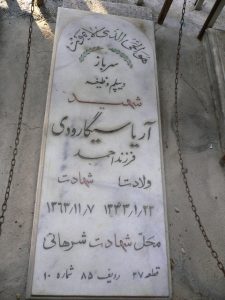 هو الحی الذی لا یموت
سرباز
دیپلم وظیفه
شهید
آریا سیگارودی
فرزند احمد
ولادت شهادت
۱۳۴۳/۱/۲۲ ۱۳۶۳/۱۱/۷
محل شهادت شرهانی
قطعه ۲۷ ردیف ۸۵ شماره ۱۰